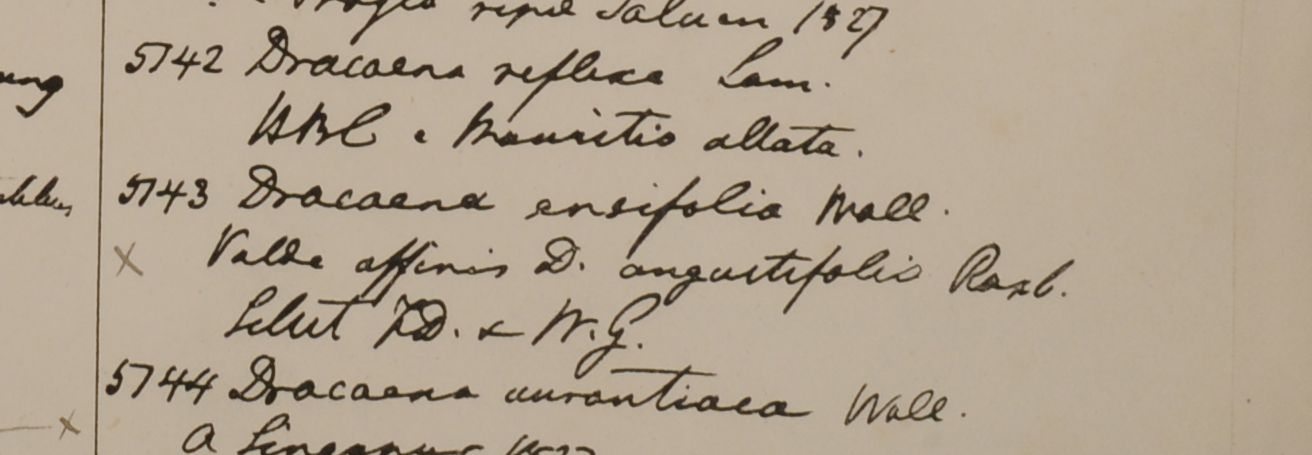 Prope ripas Saluen 1827
5742 Dracaena reflexa Lam.
HBC e Mauritio allata.
5743 Dracaena ensifolia Wall.
x Valde affinis D. angustifolia Roxb.
Silhet F.D. & W.G.
5744 Dracaena aurantiaca Wall.
x a Singapur